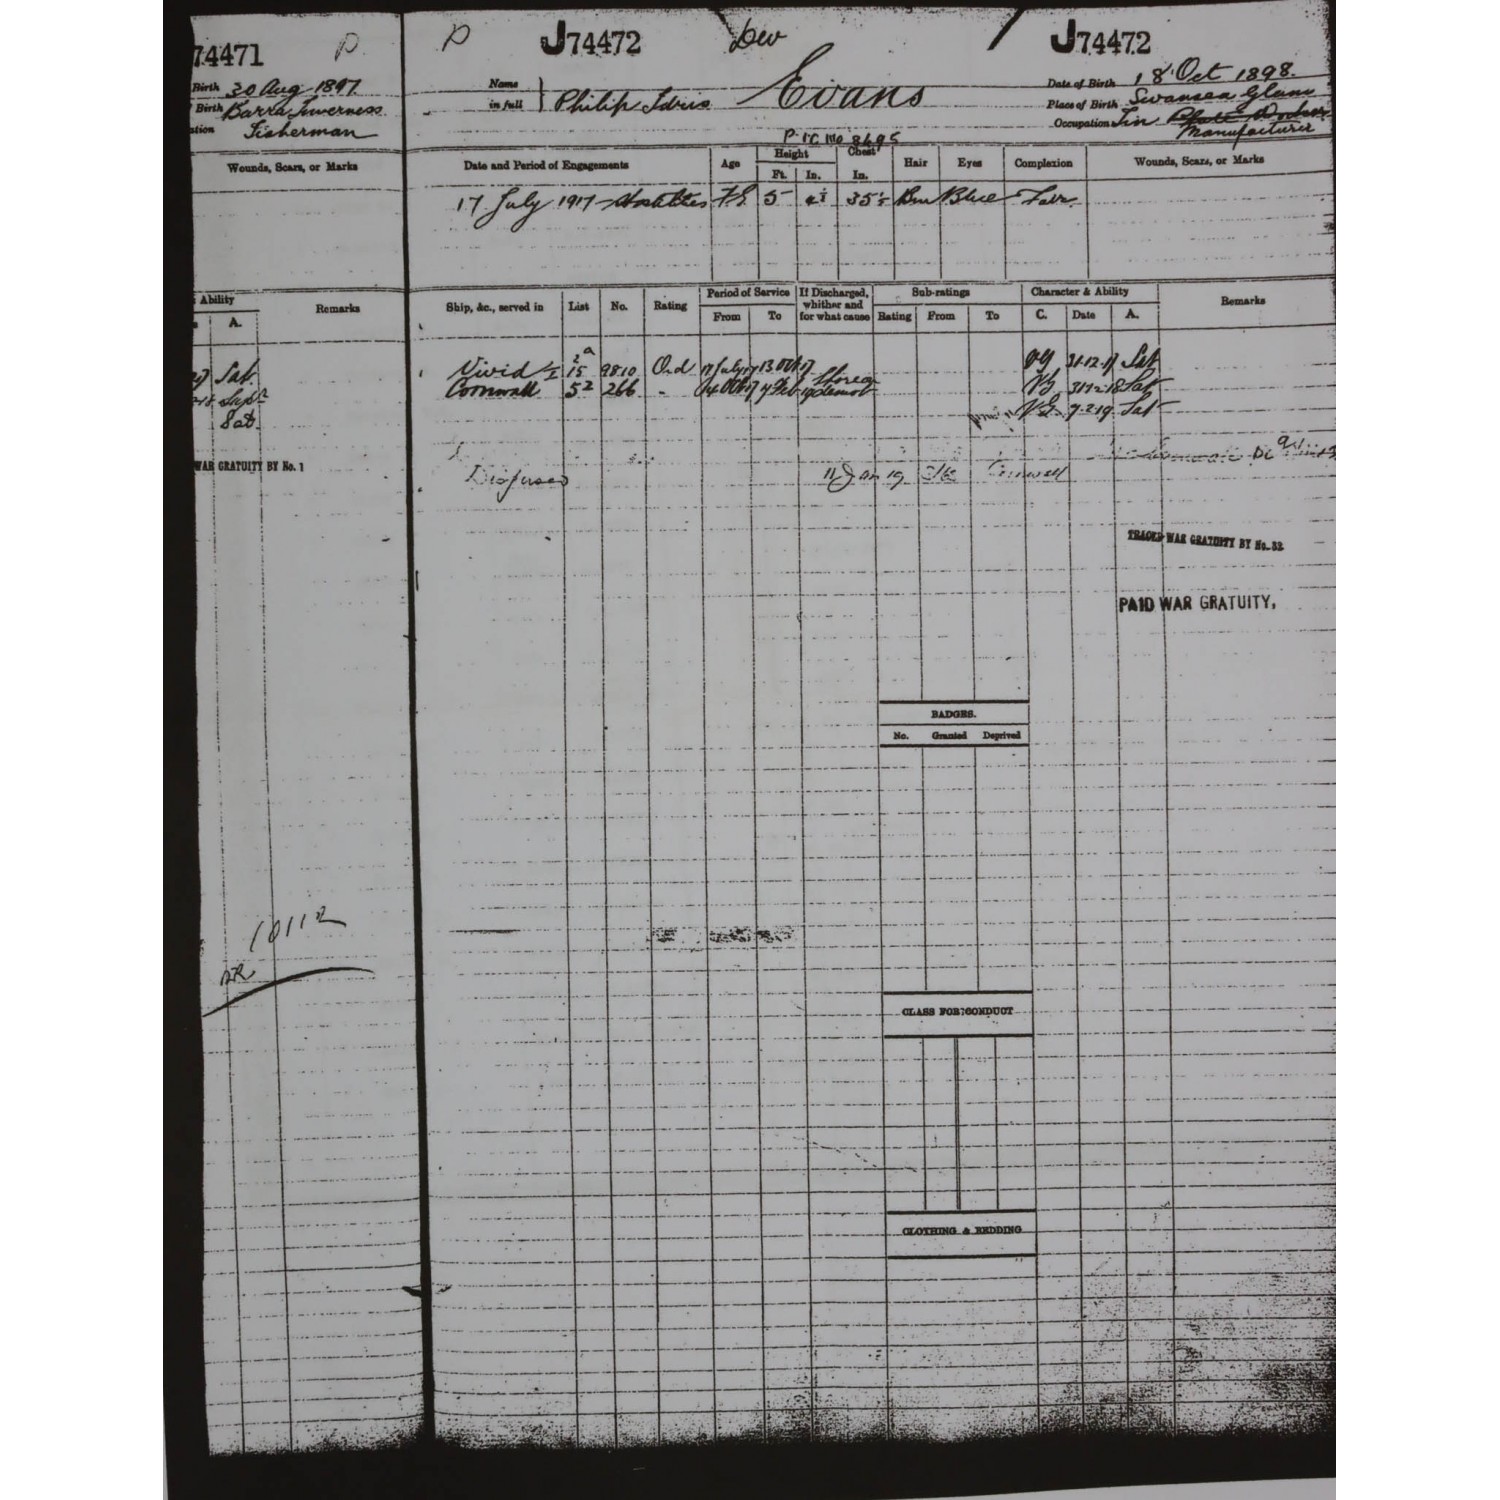 74471 P
Birth 30 Aug 1897
Birth Barra Inverness
ation Fisherman
Wounds, Scars, or Marks
Ability
A.
Remarks
Sat.
Sat.
WAR GRATUITY BY No. 1
10112
P J74472 Dev J74472
Name in full Philip Idris Evans
Date of Birth 18 Oct 1898.
Place of Birth Swansea Glam
Occupation Tin Plate Worker
Manufacturer
Date and Period of Engagements Age Height Chest Hair Eyes Complexion Wounds, Scars, or Marks
Ft. In. In.
17 July 1917 Hostilities 5 Brn Blue Fair
Ship, &c., served in List No. Rating Period of Service If Discharged, whether and for what cause Sub-ratings Character & Ability Remarks
From To Rating From To C. Date A.
Vivid I 15 2a 9810 Ord 17 July 17 13 Oct 17 VG 31.12.17 Sat
Cornwall 52 266 - 14 Oct 17 7 Feb 19 Shore demob VG 31.12.18 Sat
VG 7.2.19 Sat
Dispersed 11 Jan 19 Cornwall
TRACED WAR GRATUITY BY No. 32
PAID WAR GRATUITY.
BADGES.
No. Granted Deprived
CLASS FOR CONDUCT
CLOTHING & BEDDING